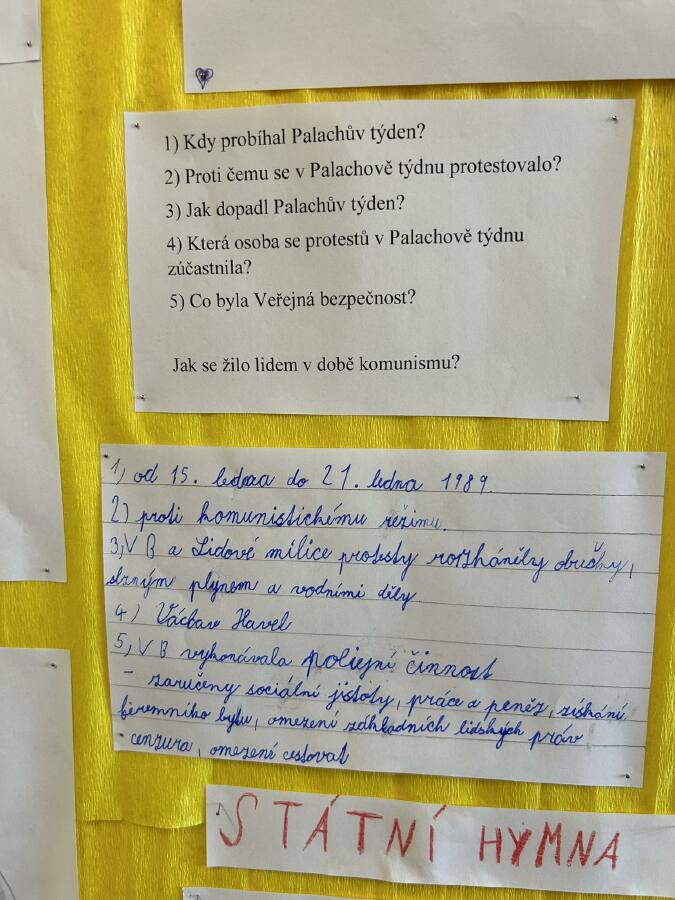 1) Kdy probíhal Palachův týden?
2) Proti čemu se v Palachově týdnu protestovalo?
3) Jak dopadl Palachův týden?
4) Která osoba se protestů v Palachově týdnu
zúčastnila?
5) Co byla Veřejná bezpečnost?
Jak se žilo lidem v době komunismu?
1) od 15. ledna do 21. ledna 1989.
2) proti komunistickému režimu.
3, V B a Lidové milice protesty rozháněly obušky,
slzným plynem a vodními děly
4) Václav Havel
5, V B vykonávala policejní činnost
- zaručeny sociální jistoty, práce a peněz, získání
firemního bytu, omezení základních lidských práv
cenzura, omezení cestovat
STÁTNÍ HYMNA